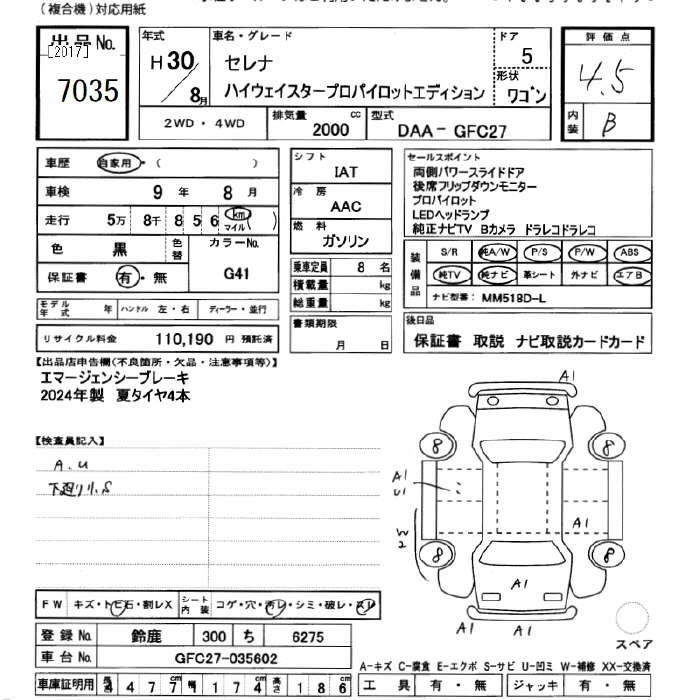 (複合機)対応用紙
出品No.
[2017]
7035
年式
H30/8月
車名・グレード
セレナ
ハイウェイスタープロパイロットエディション
ドア
5
形状
ワゴン
評価点
4.5
内装
B
2WD・4WD
排気量
2000 cc
型式
DAA-GFC27
車歴 自家用・( )
車検 9年 8月
走行 5万 8千 8 5 6 km マイル
色 黒 色替
カラーNo.
G41
保証書 有・無
モデル年式 年 ハンドル 左・右 ディーラー・並行
リサイクル料金 110,190 円 預託済
シフト
IAT
冷房
AAC
燃料
ガソリン
乗車定員 8 名
積載量 kg
総重量 kg
書類期限
月 日
セールスポイント
両側パワースライドドア
後席フリップダウンモニター
プロパイロット
LEDヘッドランプ
純正ナビTV Bカメラ ドラレコドラレコ
装備品
S/R 純A/W P/S P/W ABS
純TV 純ナビ 革シート 外ナビ エアB
ナビ型番: MM518D-L
後日品
保証書 取説 ナビ取説カードカード
【出品店申告欄(不良箇所・欠品・注意事項等)】
エマージェンシーブレーキ
2024年製 夏タイヤ4本
【検査員記入】
A.U
下廻り小S
A1
8 8
A1
U1
W2
A1
8 8
A1
A1 A1
スペア
FW キズ・トビ石・割レX
シート内装 コゲ・穴・汚レ・シミ・破レ・スレ
登録No. 鈴鹿 300 ち 6275
車台No. GFC27-035602
車庫証明用 長 477cm 幅 174cm 高さ 186cm
A-キズ C-腐食 E-エクボ S-サビ U-凹ミ W-補修 XX-交換済
工具 有・無 ジャッキ 有・無